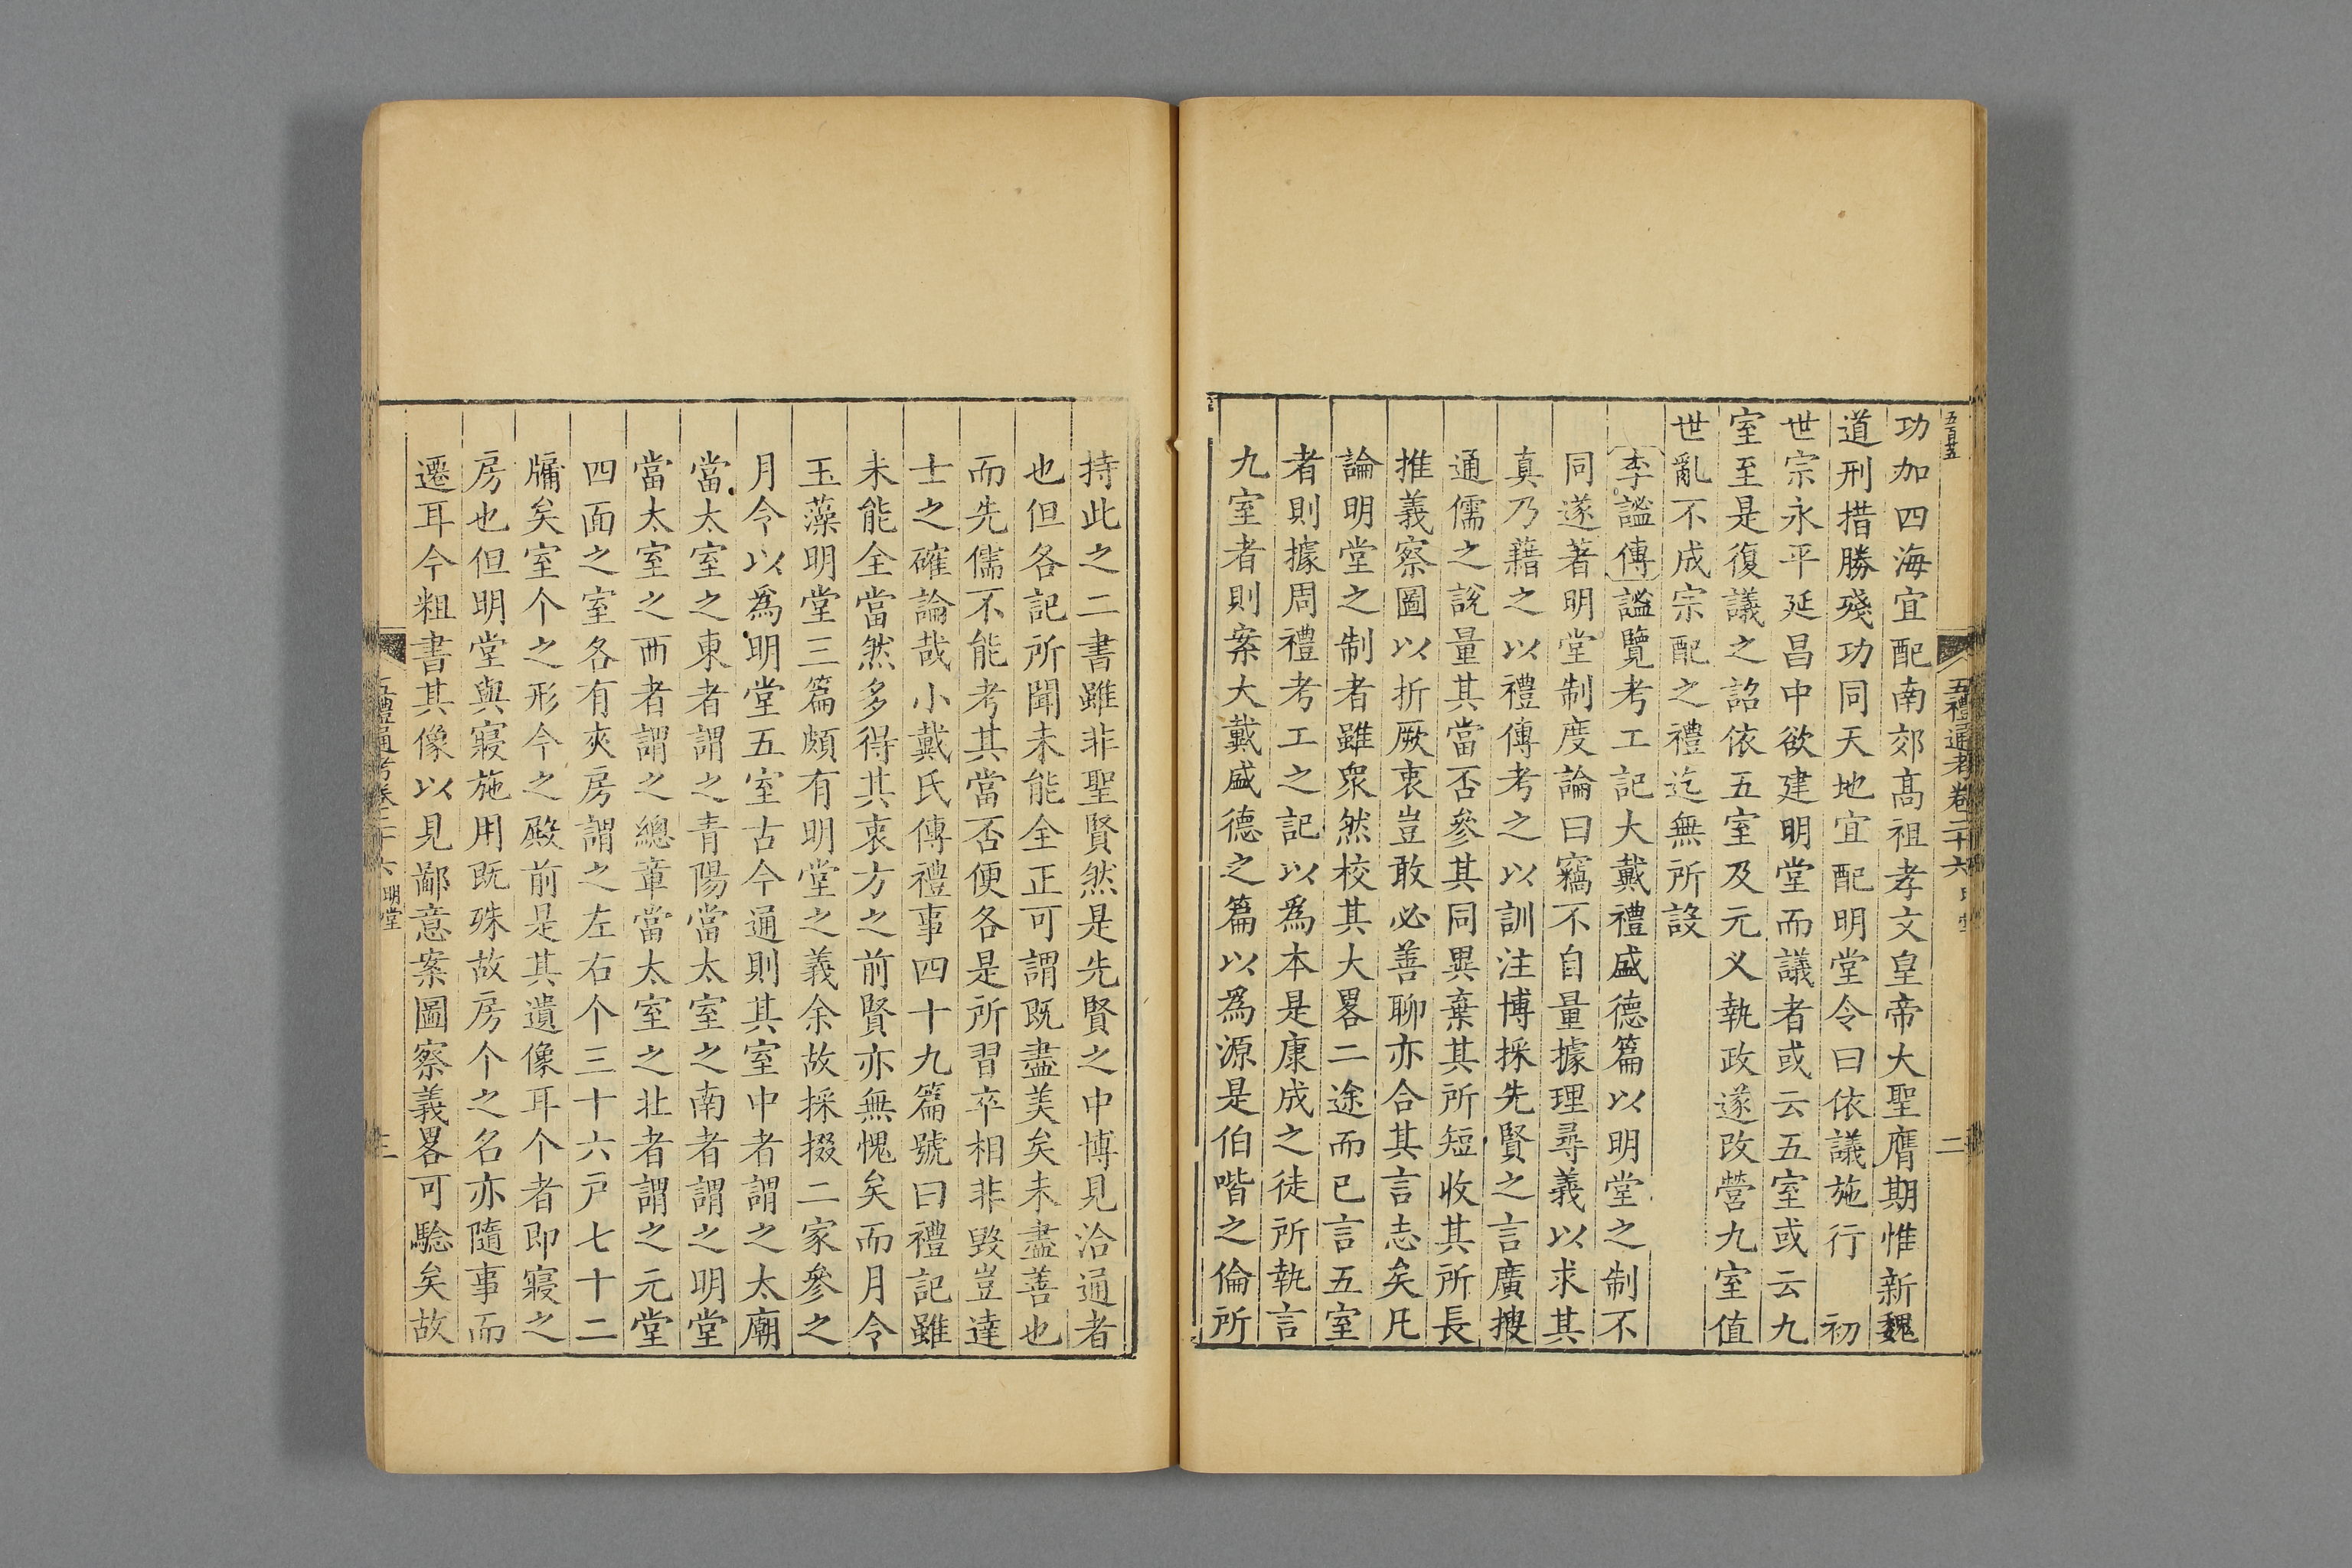 五百廿五
五禮通考卷二十六 明堂 二
功加四海宜配南郊高祖孝文皇帝大聖膺期惟新魏
道刑措勝殘功同天地宜配明堂令曰依議施行 初
世宗永平延昌中欲建明堂而議者或云五室或云九
室至是復議之詔依五室及元乂執政遂改營九室值
世亂不成宗配之禮迄無所設
李謐傳謐覽考工記大戴禮盛德篇以明堂之制不
同遂著明堂制度論曰竊不自量據理尋義以求其
真乃藉之以禮傳考之以訓注博採先賢之言廣搜
通儒之說量其當否參其同異棄其所短收其所長
推義察圖以折厥衷豈敢必善聊亦合其言志矣凡
論明堂之制者雖衆然校其大畧二途而已言五室
者則據周禮考工之記以爲本是康成之徒所執言
九室者則案大戴盛德之篇以爲源是伯喈之倫所
持此之二書雖非聖賢然是先賢之中博見洽通者
也但各記所聞未能全正可謂既盡美矣未盡善也
而先儒不能考其當否便各是所習卒相非毀豈達
士之確論哉小戴氏傳禮事四十九篇號曰禮記雖
未能全當然多得其衷方之前賢亦無愧矣而月令
玉藻明堂三篇頗有明堂之義余故採掇二家參之
月令以爲明堂五室古今通則其室中者謂之太廟
當太室之東者謂之青陽當太室之南者謂之明堂
當太室之西者謂之總章當太室之北者謂之元堂
四面之室各有夾房謂之左右个三十六戸七十二
牖矣室个之形今之殿前是其遺像耳个者即寢之
房也但明堂與寢施用既殊故房个之名亦隨事而
遷耳今粗書其像以見鄙意案圖察義畧可驗矣故
五禮通考卷二十六 明堂 三